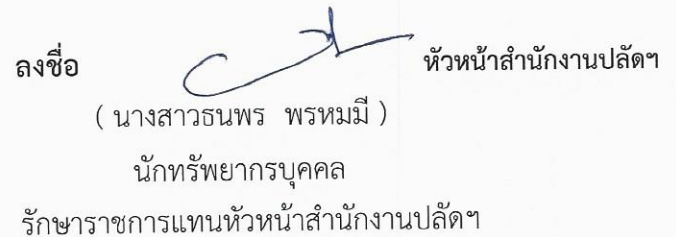 ลงชื่อ หัวหน้าสำนักงานปลัดฯ
( นางสาวธนพร พรหมมี )
นักทรัพยากรบุคคล
รักษาราชการแทนหัวหน้าสำนักงานปลัดฯ